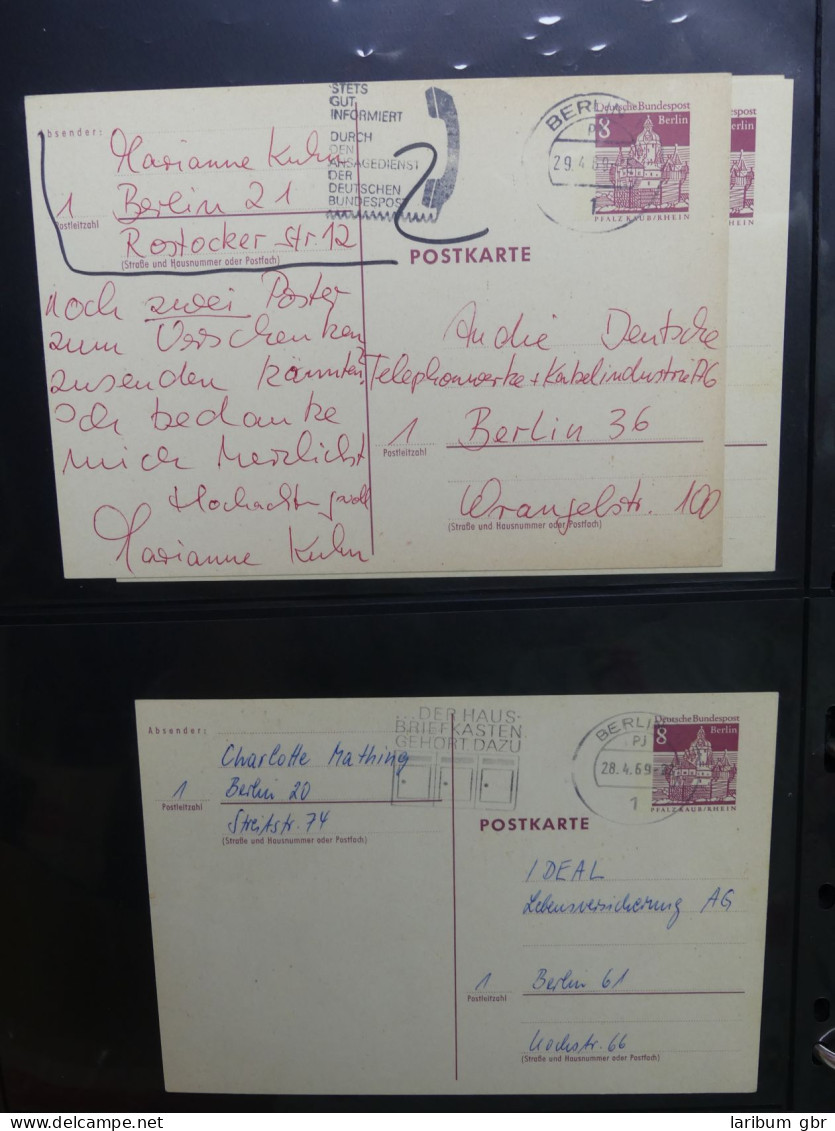 STETS
GUT
INFORMIERT
DURCH
DEN
ANSAGEDIENST
DER
DEUTSCHEN
BUNDESPOST
BERLIN
29.4.69
1
Deutsche Bundespost
8 Berlin
PFALZ KAUB/RHEIN
post
erlin
HEIN
Absender:
Marianne Kuhn
1 Berlin 21
Postleitzahl
Rostocker Str. 12
(Straße und Hausnummer oder Postfach)
POSTKARTE
noch zwei Poster
zum Verschenken
zusenden könnten?
Ich bedanke
mich herzlichst
Hochachtungsvoll
Marianne Kuhn
An die Deutsche
Telephonwerke + Kabelindustrie AG
1 Berlin 36
Postleitzahl
Wrangelstr. 100
(Straße und Hausnummer oder Postfach)
...DER HAUS-
BRIEFKASTEN
GEHÖRT DAZU
BERLIN
PJ
28.4.69
1
Deutsche Bundespost
8 Berlin
PFALZ KAUB/RHEIN
Absender:
Charlotte Mathing
1 Berlin 20
Postleitzahl
Streitstr. 74
(Straße und Hausnummer oder Postfach)
POSTKARTE
IDEAL
Lebensversicherung AG
1 Berlin 61
Postleitzahl
Kochstr. 66
(Straße und Hausnummer oder Postfach)
laribum gbr